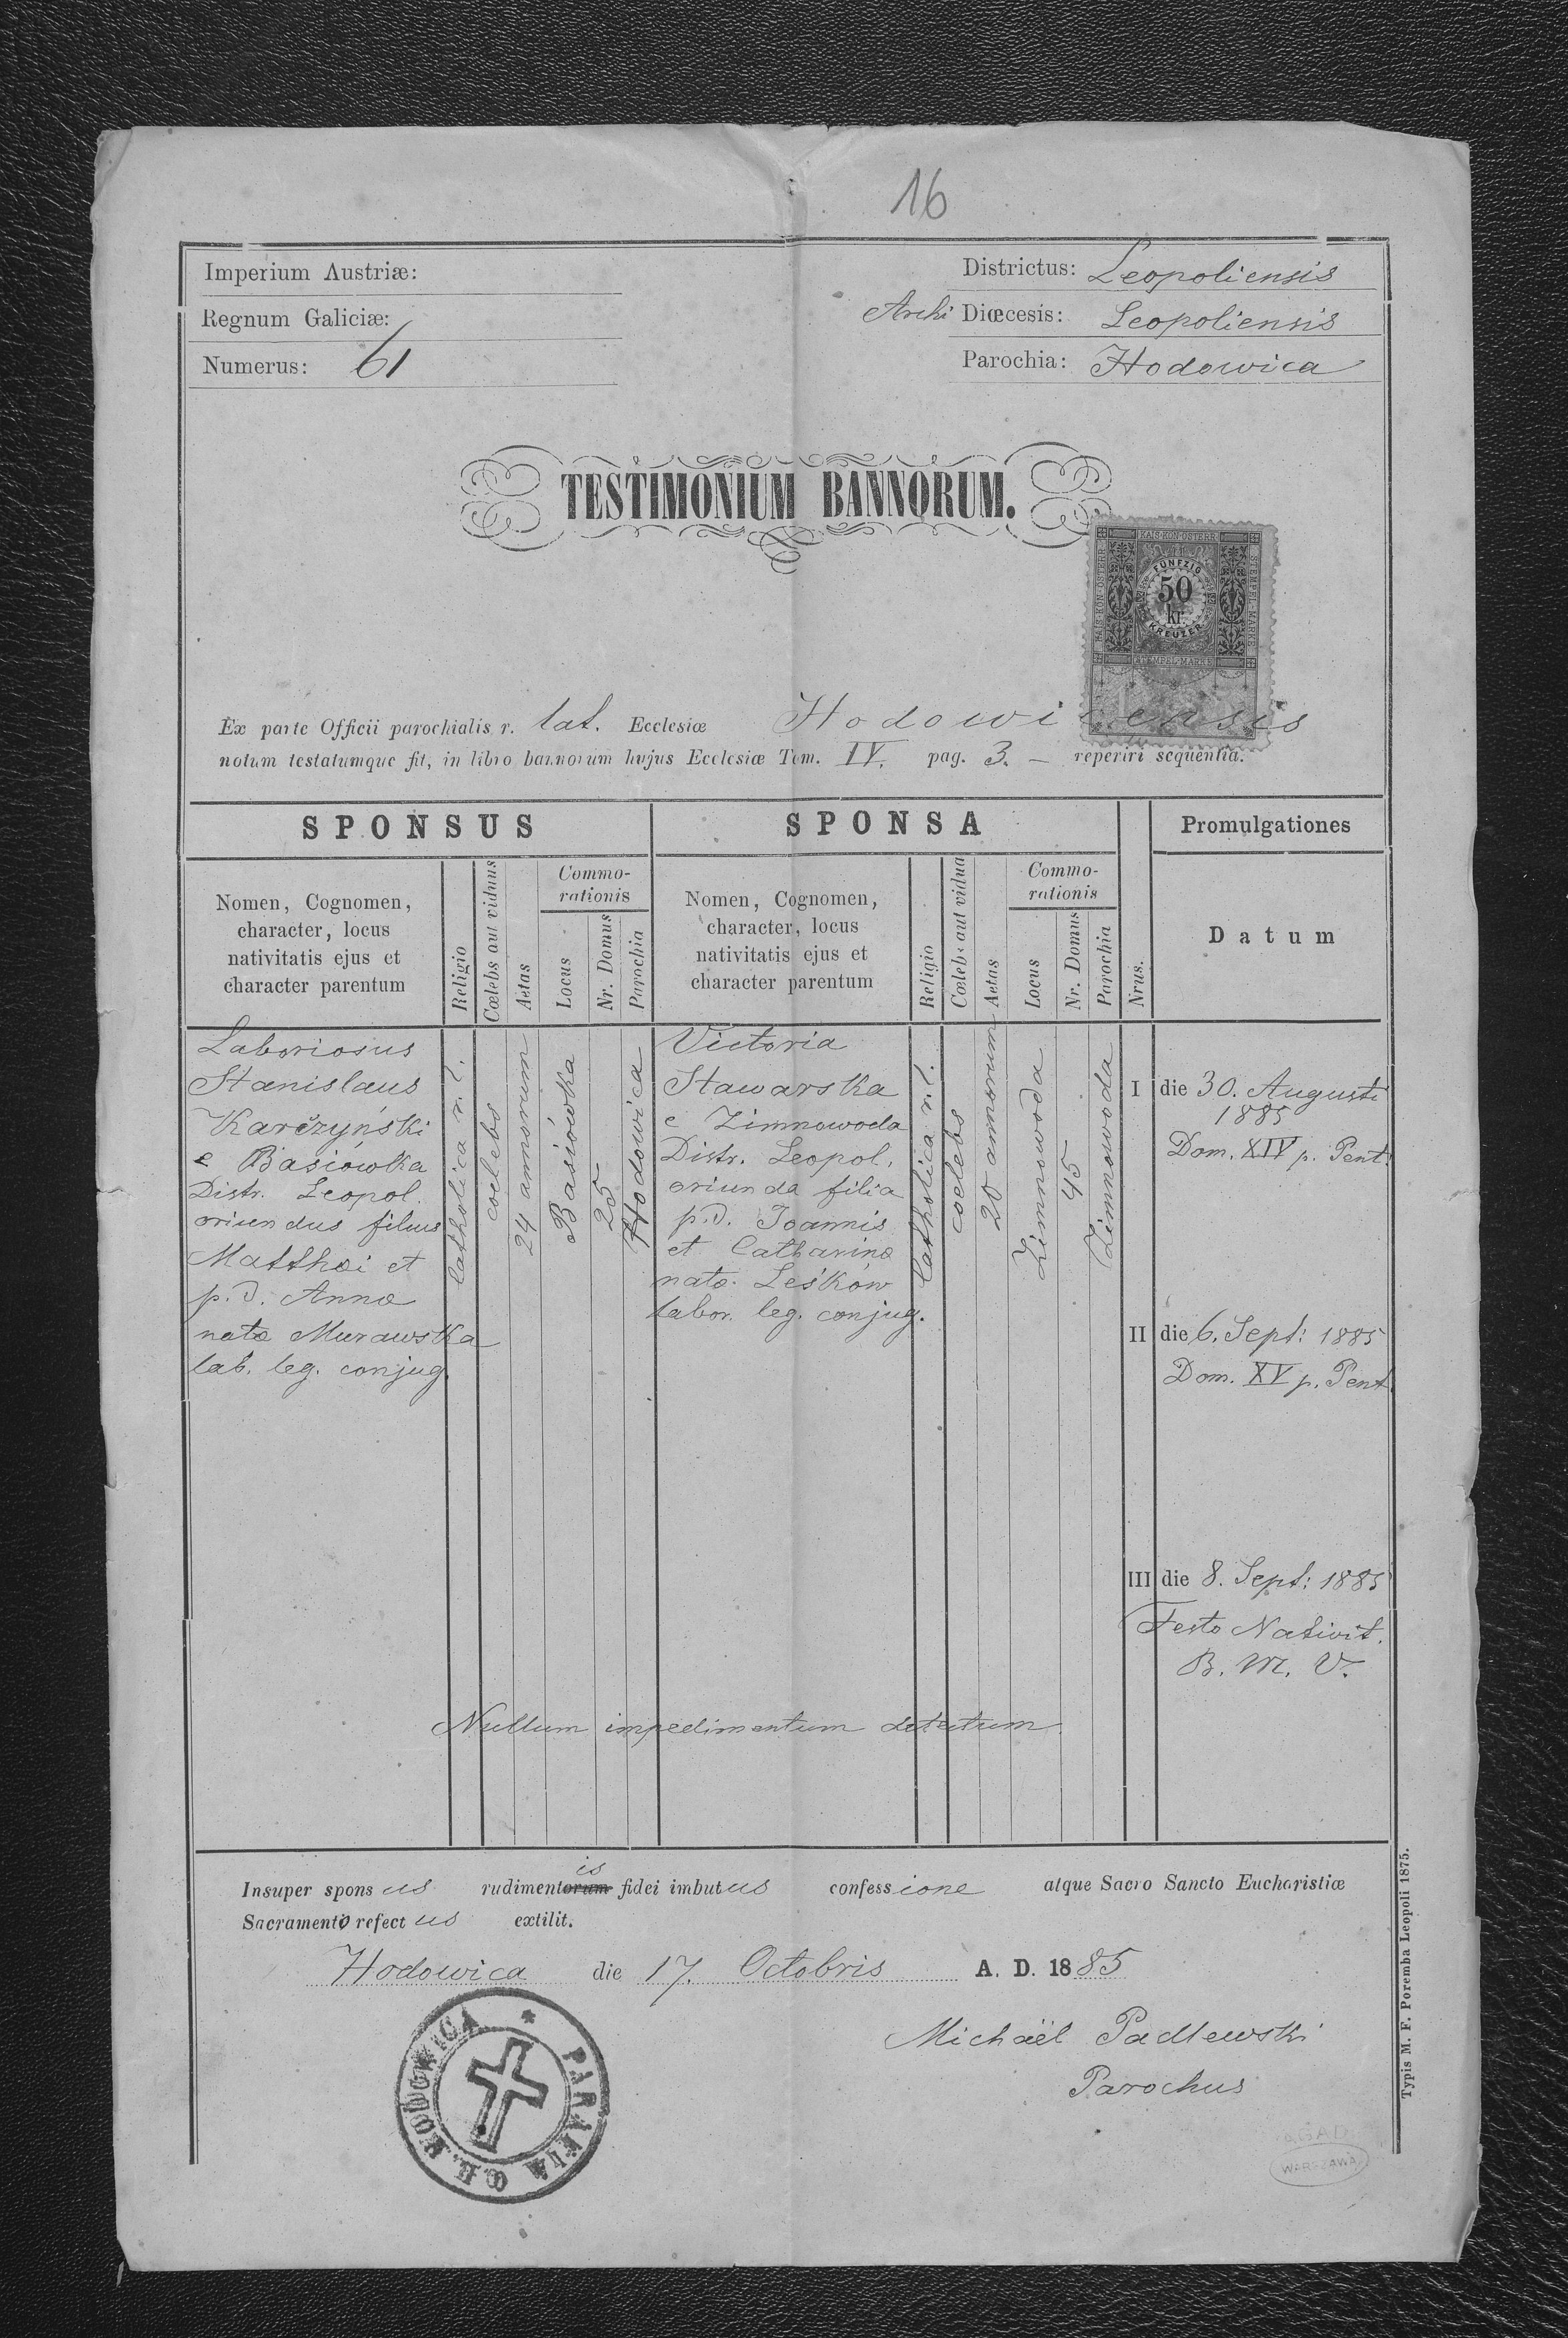 16
Imperium Austriæ:
Regnum Galiciæ:
Numerus: 61
Districtus: Leopoliensis
Archi Diœcesis: Leopoliensis
Parochia: Hodowica
TESTIMONIUM BANNORUM.
KAIS. KÖN. ÖSTERR.
KAIS. KÖN. ÖSTERR.
STEMPEL-MARKE
FÜNFZIG
50
kr.
KREUZER
STEMPEL-MARKE
Ex parte Officii parochialis r. lat. Ecclesiæ Hodowicensis
notum testatumque fit, in libro bannorum hujus Ecclesiæ Tom. IV. pag. 3. — reperiri sequentia.
SPONSUS
SPONSA
Promulgationes
Nomen, Cognomen,
character, locus
nativitatis ejus et
character parentum
Religio
Cœlebs aut viduus
Aetas
Commo-
rationis
Locus
Nr. Domus
Parochia
Nomen, Cognomen,
character, locus
nativitatis ejus et
character parentum
Religio
Cœlebs aut vidua
Aetas
Commo-
rationis
Locus
Nr. Domus
Parochia
Nrus.
Datum
Laboriosus
Stanislaus
Karczyński
e Basiówka
Distr. Leopol.
oriundus filius
Matthæi et
p. d. Annæ
natæ Murawska
lab. leg. conjug.
catholica r. l.
coelebs
24 annorum
Basiówka
25
Hodowica
Victoria
Stawarska
e Zimnowoda
Distr. Leopol.
oriunda filia
p. d. Joannis
et Catharinæ
natæ Leśków
labor. leg. conjug.
catholica r. l.
coelebs
20 annorum
Zimnowoda
45
Zimnowoda
I die 30. Augusti
1885
Dom. XIV p. Pent.
II die 6. Sept: 1885
Dom. XV p. Pent.
III die 8. Sept: 1885
Festo Nativit.
B. M. V.
Nullum impedimentum detectum.
Insuper sponsus rudimentorum is fidei imbutus confessione atque Sacro Sancto Eucharistiæ
Sacramento refectus extitit.
Hodowica die 17. Octobris A. D. 1885
Michaël Padlewski
Parochus
PARAFIA O.Ł. HODOWICA
AGAD
WARSZAWA
Typis M. F. Poremba Leopoli 1875.